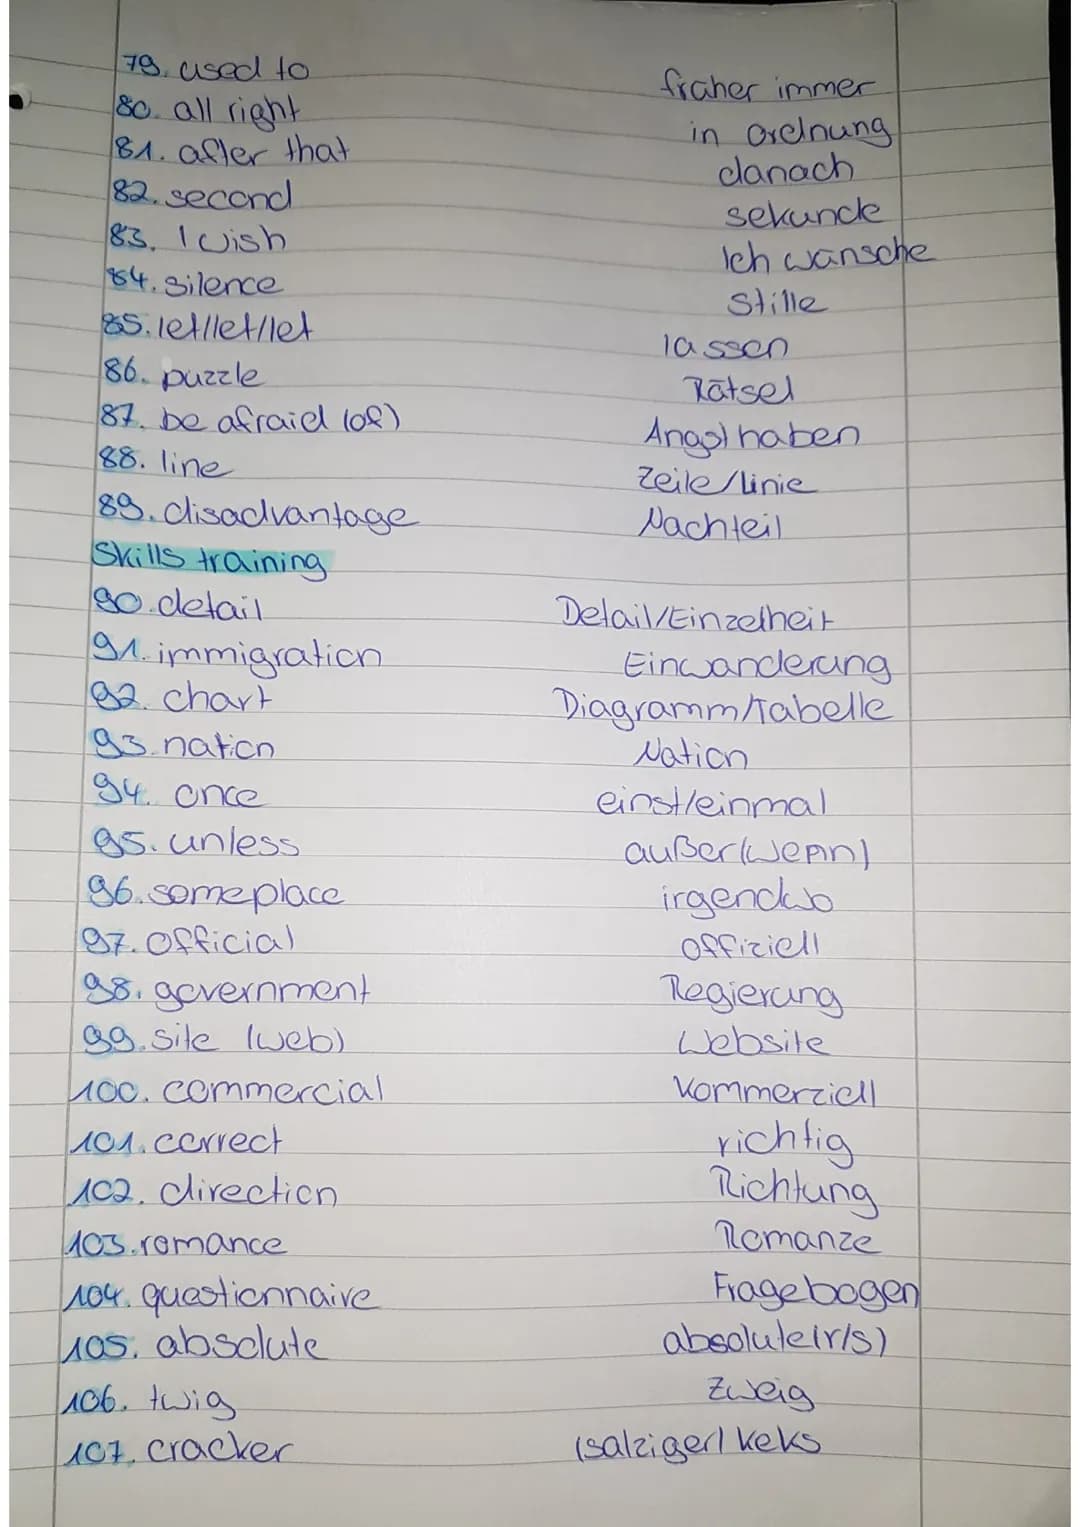 79. used to früher immer
80. all right in ordnung
81. after that danach
82. second sekunde
83. I wish Ich wünsche
84. silence Stille
85. let/let/let lassen
86. puzzle Rätsel
87. be afraid (of) Angst haben
88. line Zeile/Linie
89. disadvantage Nachteil
Skills training
90. detail Detail/Einzelheit
91. immigration Einwanderung
92. chart Diagramm/Tabelle
93. nation Nation
94. once einst/einmal
95. unless außer(wenn)
96. someplace irgendwo
97. Official offiziell
98. government Regierung
99. site (web) Website
100. commercial kommerziell
101. correct richtig
102. direction Richtung
103. romance Romanze
104. questionnaire Fragebogen
105. absolute absolute(r/s)
106. twig Zweig
107. cracker (salziger) keks